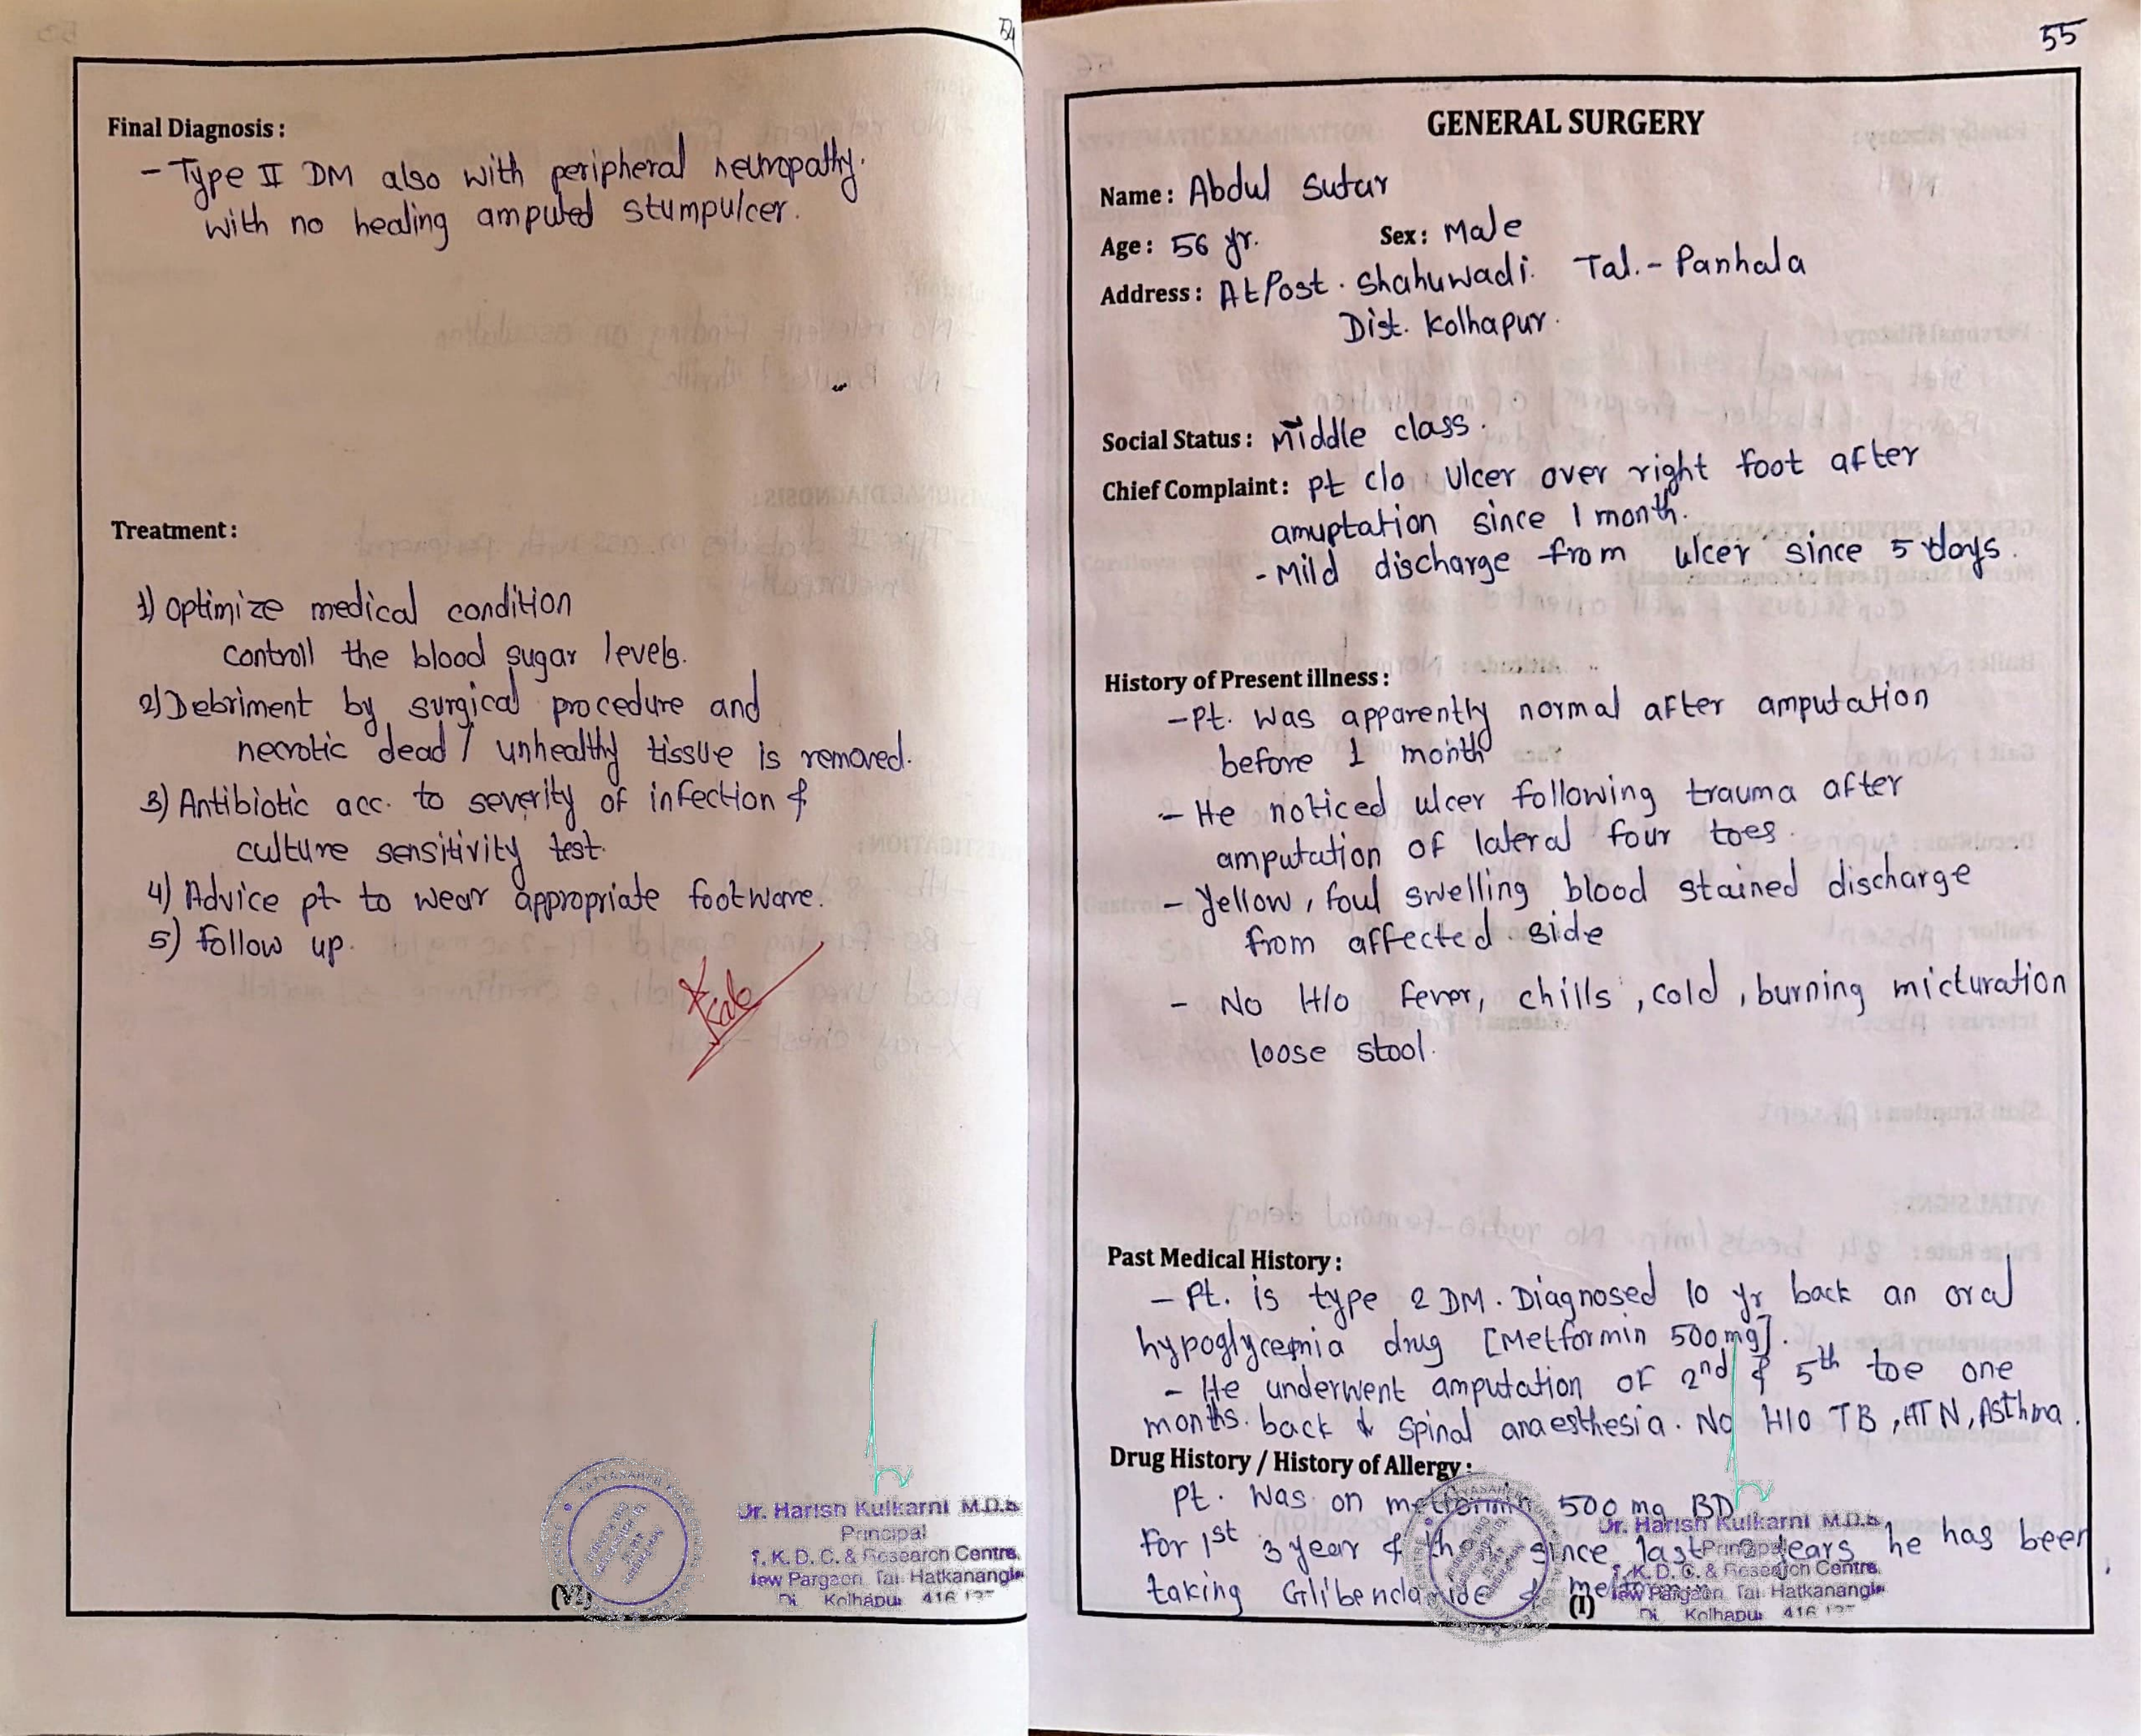 54
Final Diagnosis :
- Type II DM also with peripheral neuropathy.
with no healing amputed stumpulcer.
Treatment :
1) Optimize medical condition
controll the blood sugar levels.
2) Debriment by surgical procedure and
necrotic dead / unhealthy tissue is removed.
3) Antibiotic acc. to severity of infection &
culture sensitivity test.
4) Advice pt to wear appropriate footware.
5) follow up.
Dr. Harish Kulkarni M.D.S
Principal
T. K. D. C. & Research Centre,
New Pargaon Tal. Hatkanangle
Di Kolhapur 416 137
(VI)
55
GENERAL SURGERY
Name : Abdul Sutar
Age : 56 yr. Sex : Male
Address : At Post . Shahuwadi. Tal. - Panhala
Dist. Kolhapur.
Social Status : Middle class.
Chief Complaint : pt c/o Ulcer over right foot after
amuptation since 1 month.
- Mild discharge from ulcer since 5 days.
History of Present illness :
- Pt. was apparently normal after amputation
before 1 month
- He noticed ulcer following trauma after
amputation of lateral four toes.
- Yellow, foul swelling blood stained discharge
from affected side
- No H/o Fever, chills, cold, burning micturation
loose stool.
Past Medical History :
- Pt. is type 2 DM. Diagnosed 10 yr back an oral
hypoglycemia drug [Metformin 500mg].
- He underwent amputation of 2nd & 5th toe one
months. back & spinal anaesthesia. No H/O TB, HTN, Asthma.
Drug History / History of Allergy :
Pt. was on metformin 500 mg BD
For 1st 3 year & then since last years he has been
taking Glibenclamide & metformin
Dr. Harish Kulkarni M.D.S
Principal
T. K. D. C. & Research Centre,
New Pargaon Tal. Hatkanangle
Di Kolhapur 416 137
(I)